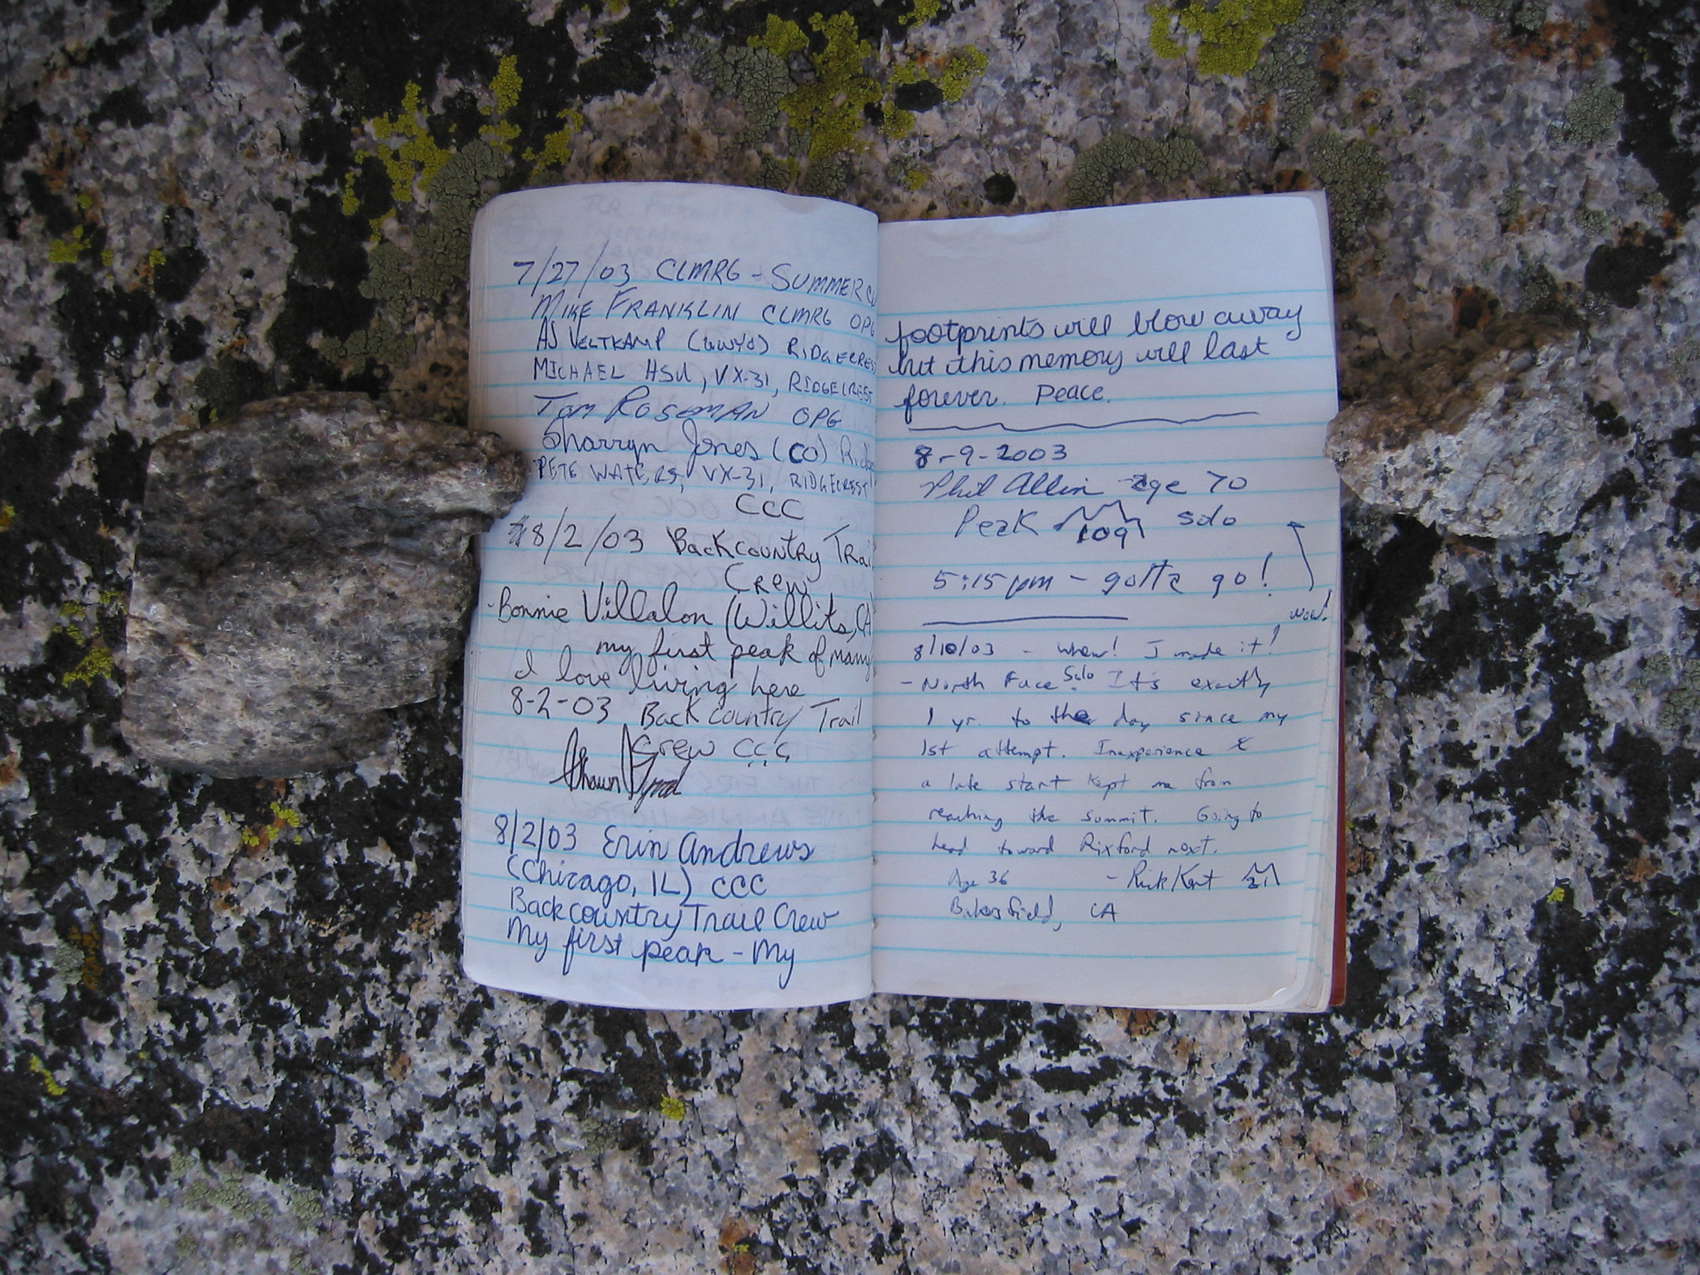 7/27/03 CLMRG - SUMMER
MIKE FRANKLIN CLMRG OPG
AJ VELTKAMP RIDGECREST
MICHAEL HSU, VX-31, RIDGECREST
TOM ROSEMAN OPG
Sharryn Jones (CO)
PETE WATERS, VX-31, RIDGECREST
CCC
8/2/03 Backcountry Trail
Crew
Bonnie Villalon (Willits, CA)
my first peak of many
I love living here
8-2-03 Backcountry Trail
Crew CCC
Shawn
8/2/03 Erin Andrews
(Chicago, IL) CCC
Backcountry Trail Crew
My first peak - My
footprints will blow away
but this memory will last
forever. Peace.
8-9-2003
Phil Allin age 70
Peak 109 solo
5:15 pm - gotta go!
wow!
8/10/03 - whew! I made it!
- North Face Solo. It's exactly
1 yr. to the day since my
1st attempt. Inexperience &
a late start kept me from
reaching the summit. Going to
head toward Rixford next.
Age 36 - Rick Kent 21
Bakersfield, CA